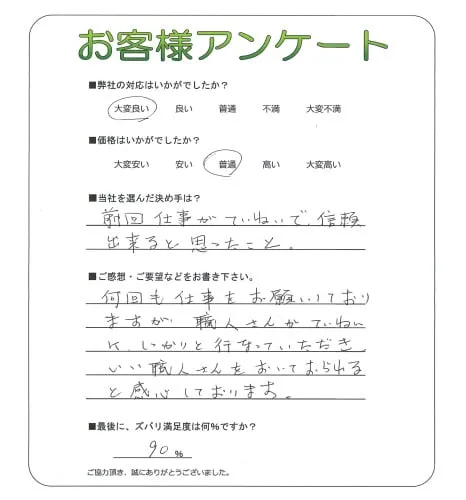 お客様アンケート
■弊社の対応はいかがでしたか？
大変良い 良い 普通 不満 大変不満
■価格はいかがでしたか？
大変安い 安い 普通 高い 大変高い
■当社を選んだ決め手は？
前回仕事がていねいで、信頼
出来ると思ったこと。
■ご感想・ご要望などをお書き下さい。
何回も仕事をお願いしており
ますが、職人さんがていねい
に、しっかりと行なっていただき
いい職人さんをおいておられる
と感心しております。
■最後に、ズバリ満足度は何％ですか？
90％
ご協力頂き、誠にありがとうございました。